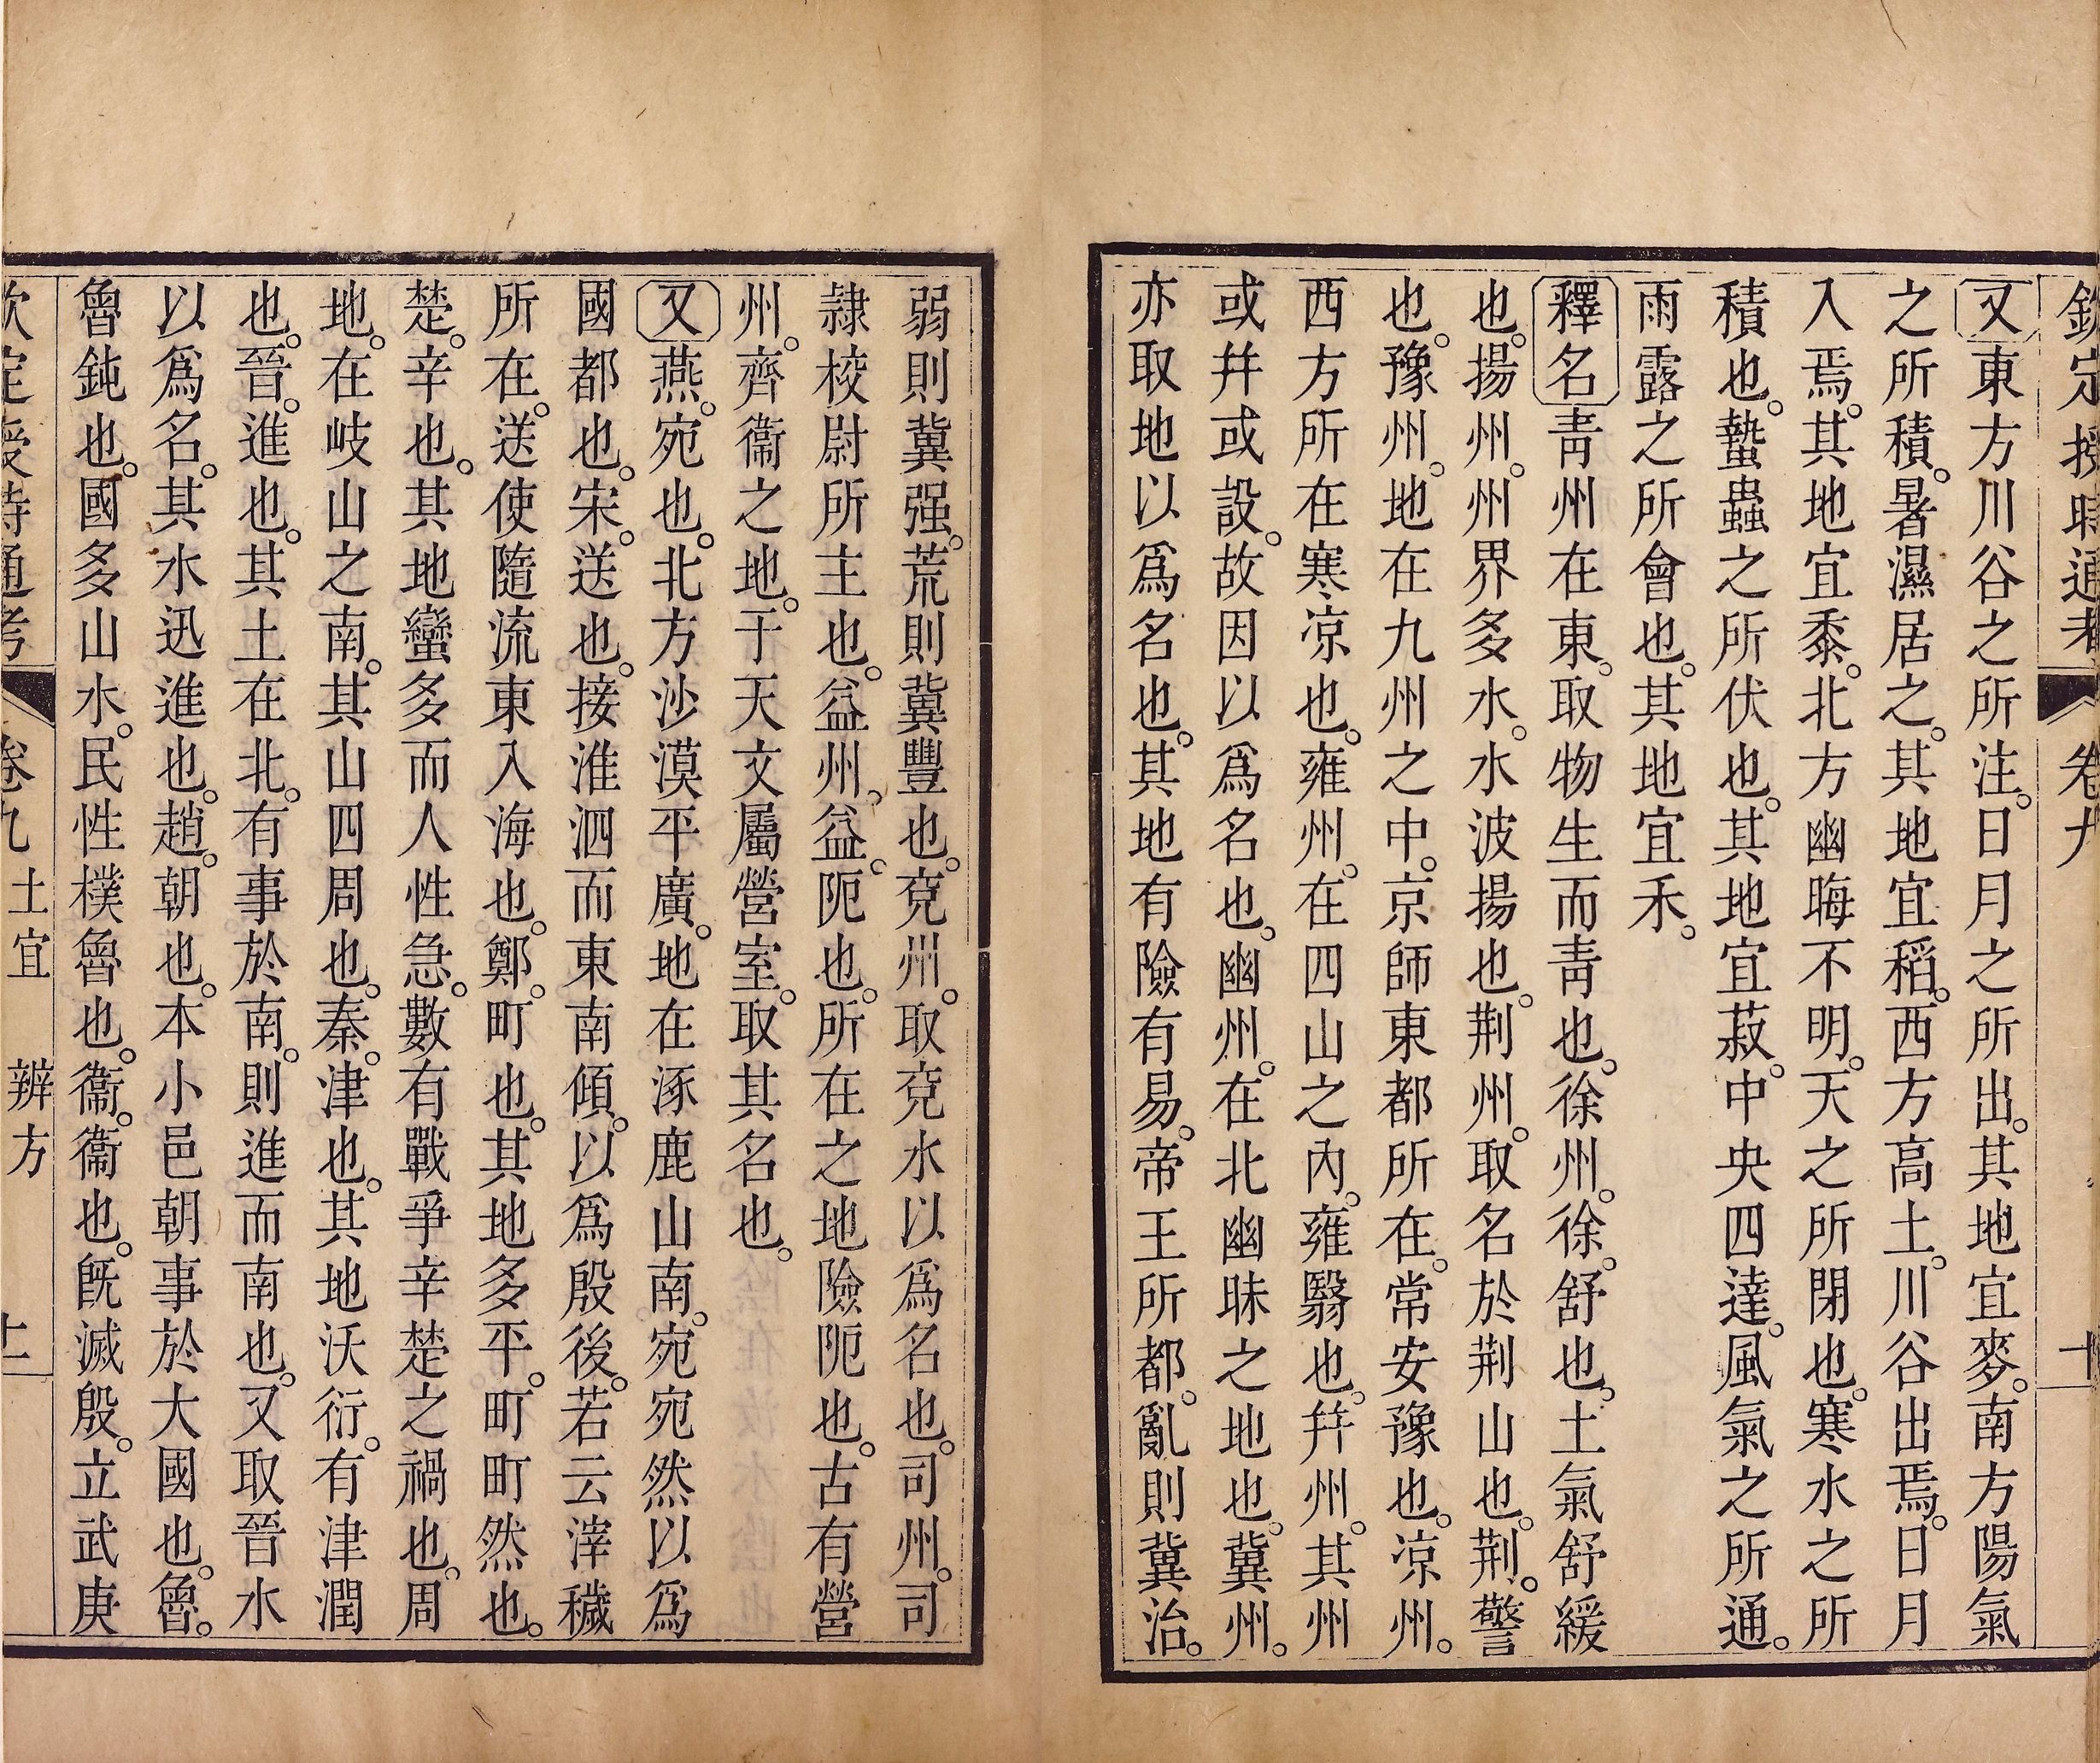 欽定授時通考 卷九 十
又東方川谷之所注。日月之所出。其地宜麥。南方陽氣
之所積。暑濕居之。其地宜稻。西方高土。川谷出焉。日月
入焉。其地宜黍。北方幽晦不明。天之所閉也。寒水之所
積也。蟄蟲之所伏也。其地宜菽。中央四達。風氣之所通。
雨露之所會也。其地宜禾。
釋名靑州在東。取物生而靑也。徐州。徐。舒也。土氣舒緩
也。揚州。州界多水。水波揚也。荆州。取名於荆山也。荆。警
也。豫州。地在九州之中。京師東都所在。常安豫也。凉州。
西方所在寒凉也。雍州。在四山之內。雍翳也。幷州。其州
或幷或設。故因以爲名也。幽州。在北幽昧之地也。冀州。
亦取地以爲名也。其地有險有易。帝王所都。亂則冀治。
弱則冀强。荒則冀豐也。兗州。取兗水以爲名也。司州。司
隷校尉所主也。益州。益。阨也。所在之地險阨也。古有營
州。齊衞之地。于天文屬營室。取其名也。
又燕。宛也。北方沙漠平廣。地在涿鹿山南。宛宛然以爲
國都也。宋。送也。接淮泗而東南傾。以爲殷後。若云滓穢
所在。送使隨流東入海也。鄭。町也。其地多平。町町然也。
楚。辛也。其地蠻多而人性急。數有戰爭辛楚之禍也。周
地。在岐山之南。其山四周也。秦。津也。其地沃衍。有津潤
也。晉。進也。其土在北。有事於南。則進而南也。又取晉水
以爲名。其水迅進也。趙。朝也。本小邑朝事於大國也。魯。
魯鈍也。國多山水。民性樸魯也。衞。衞也。旣滅殷。立武庚
欽定授時通考 卷九 土宜 辨方 十一